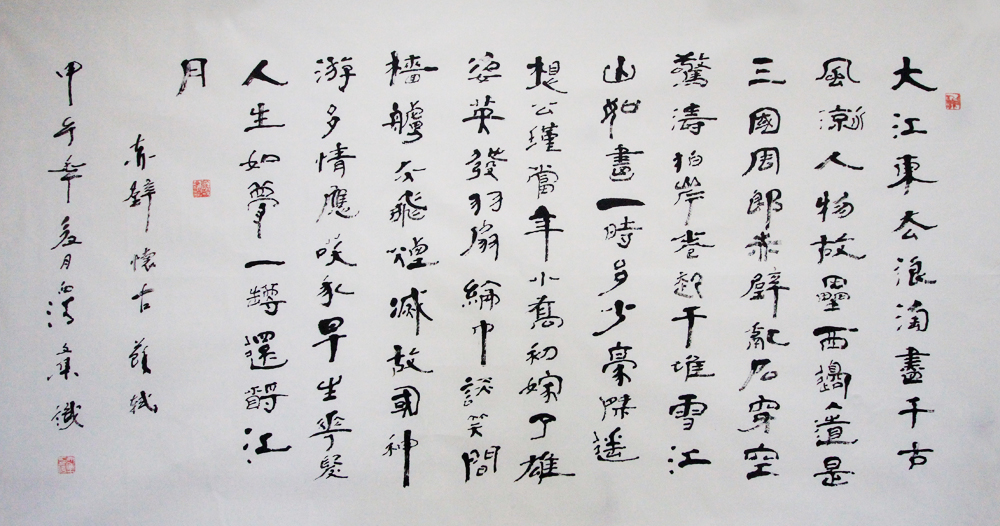 大江東去浪淘盡千古
風流人物故壘西邊人道是
三國周郎赤壁亂石穿空
驚濤拍岸卷起千堆雪江
山如畫一時多少豪傑遙
想公瑾當年小喬初嫁了雄
姿英發羽扇綸巾談笑間
檣艣灰飛煙滅故國神
游多情應笑我早生華髮
人生如夢一罇還酹江
月
赤壁懷古 蘇軾
甲午年夏月